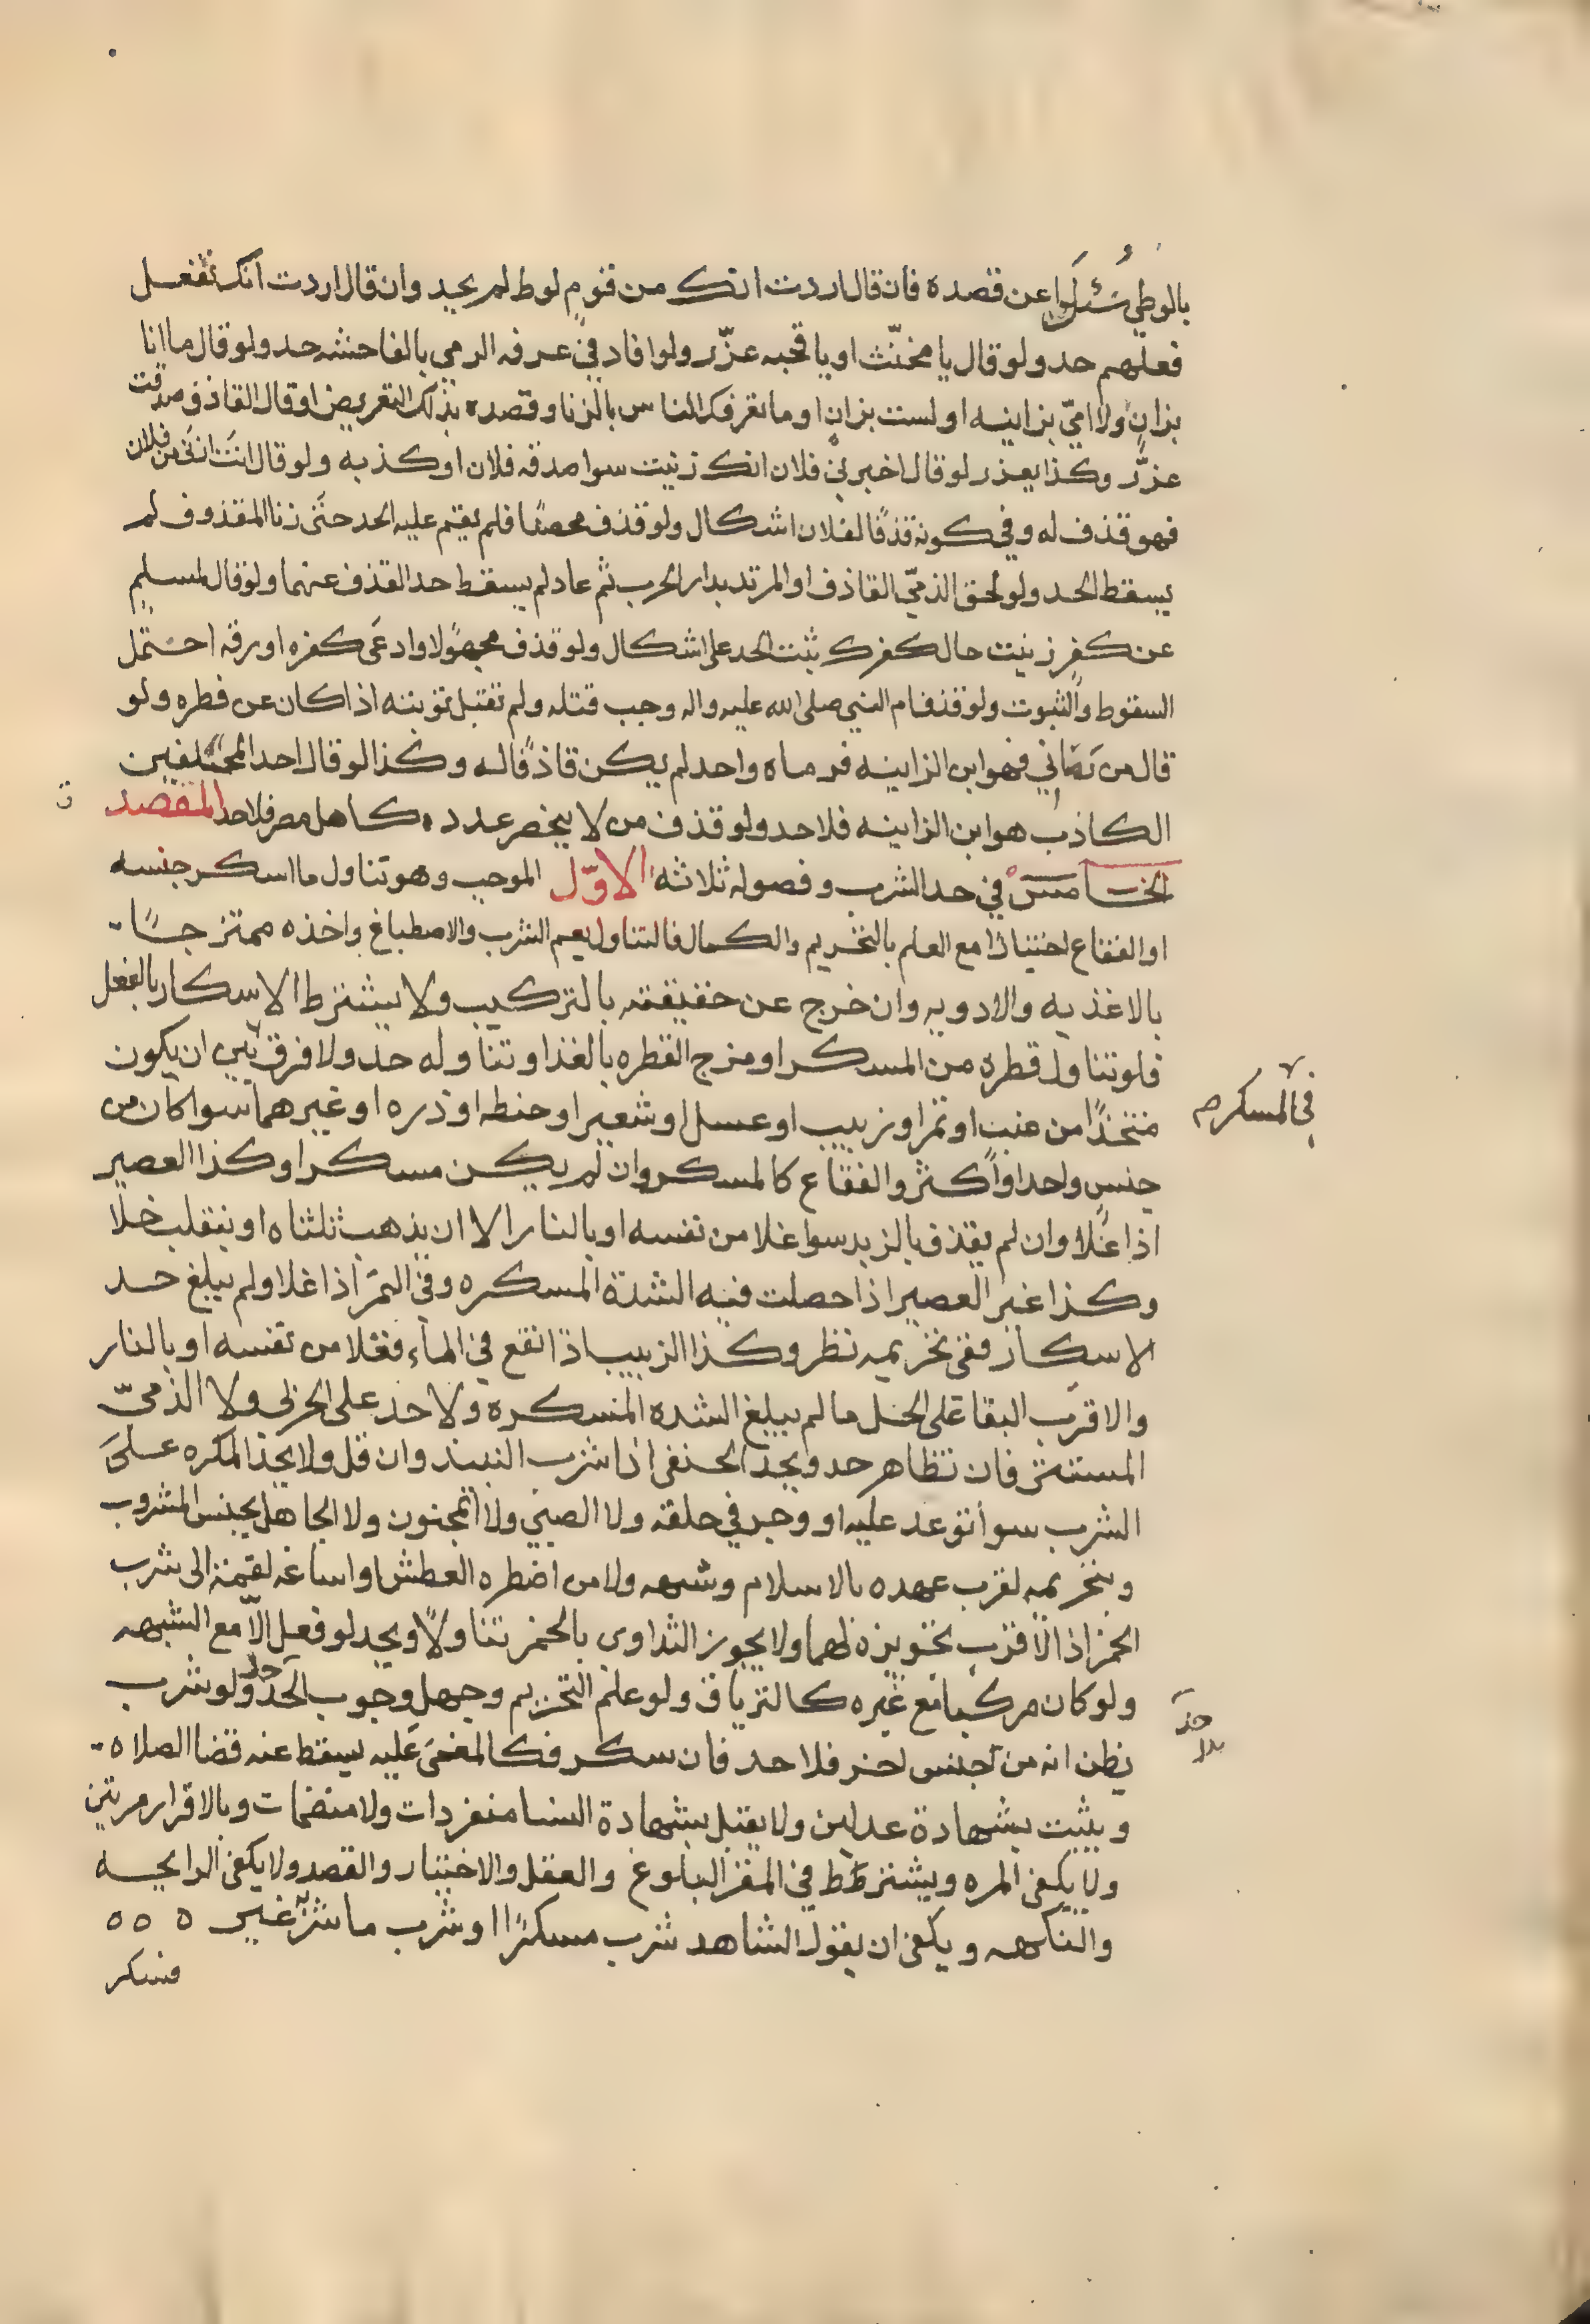 بالوطي سئلوا عن قصده فان قال اردت انك من قوم لوط لم يحد وان قال اردت انك تفعل
فعلهم حد ولو قال يا مخنّث او يا قحبه عزّر ولو افاد في عرفه الرمي بالفاحشه حد ولو قال ما انا
بزانٍ ولا امّي بزانيه او لست بزانٍ او ما تعرفك الناس بالزنا وقصده بذلك التعريض او قال القاذف صدقت
عزّر وكذا يعزر لو قال اخبرني فلان انك زنيت سوا صدقه فلان او كذبه ولو قال انت ازنى من فلان
فهو قذف له وفي كونه قذفًا لفلان اشكال ولو قذف محصنًا فلم يقم عليه الحد حتى زنا المقذوف لم
يسقط الحد ولو لحق الذمّي القاذف او المرتد بدار الحرب ثم عاد لم يسقط حد القذف عنهما ولو قال لمسلم
عن كفر زنيت حال كفرك يثبت الحد على اشكال ولو قذف مجهولا وادعى كفره او رقه احتمل
السقوط والثبوت ولو قذف ام النبي صلى الله عليه واله وجب قتله ولم تقبل توبته اذا كان عن فطره ولو
قال من رماني فهو ابن الزانيه فرماه واحد لم يكن قاذفًا له وكذا لو قال احد المختلفين
الكاذب هو ابن الزانيه فلا حد ولو قذف من لا ينحصر عدده كاهل مصر فلا حد المقصد
الخامس في حد الشرب وفصوله ثلاثه الاوّل الموجب وهو تناول ما اسكر جنسه
او الفقاع اختيارًا مع العلم بالتحريم والكمال فالتناول يعم الشرب والاصطباغ واخذه ممتزجًا
بالاغذيه والادويه وان خرج عن حقيقته بالتركيب ولا يشترط الاسكار بالفعل
فلو تناول قطرة من المسكر او مزج القطره بالغذا وتناوله حد ولا فرق بين ان يكون
في المسكر
متخذًا من عنب او تمر او زبيب او عسل او شعير او حنطه او ذره او غيرهما سوا كان من
جنس واحد او اكثر والفقاع كالمسكر وان لم يكن مسكرا وكذا العصير
اذا غلا وان لم يقذف بالزبد سوا غلا من نفسه او بالنار الا ان يذهب ثلثاه او ينقلب خلا
وكذا غير العصير اذا حصلت فيه الشدة المسكره وفي التمر اذا غلا ولم يبلغ حد
الاسكار ففي تحريمه نظر وكذا الزبيب اذا نقع في الماء فغلا من نفسه او بالنار
والاقرب البقا على الحل ما لم يبلغ الشده المسكره ولا حد على الحربي ولا الذميّ
المستتر فان تظاهر حد ويحد الحنفي اذا شرب النبيذ وان قل ولا يحد المكره على
الشرب سوا توعد عليه او وجر في حلقه ولا الصبي ولا المجنون ولا الجاهل بجنس المشروب
وبتحريمه لقرب عهده بالاسلام وشبهه ولا من اضطره العطش او اساغه لقمة الى شرب
الخمر اذ الاقرب تحويزه لهما ولا يجوز التداوي بالخمر تناولا ويحد لو فعل الا مع الشبهه
ولو كان مركبا مع غيره كالترياق ولو علم التحريم وجهل وجوب الحد حد ولو شرب
حد
يظن انه من جنس اخر فلا حد فان سكر فكالمغمى عليه يسقط عنه قضا الصلاه
ويثبت بشهادة عدلين ولا يقبل بشهادة النسا منفردات ولا منضمات وبالاقرار مرتين
ولا يكفي المره ويشترط في المقر البلوغ والعقل والاختيار والقصد ولا يكفي الرايحه
والنكهه ويكفي ان يقول الشاهد شرب مسكرًا او شرب ما شربه غيره ه ه ه
فسكر